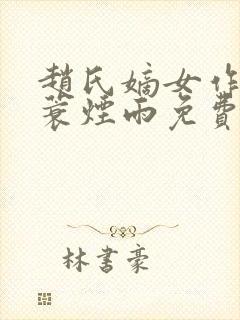 趙氏嫡女作
蓑煙雨免費
林書豪